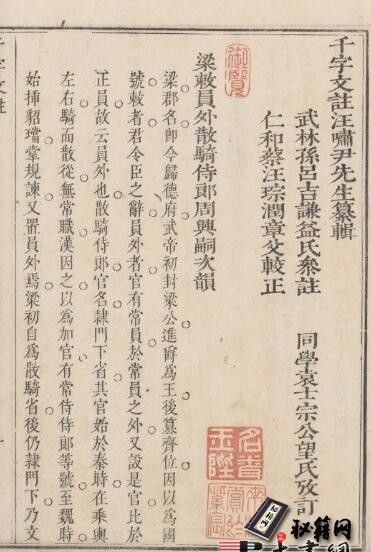 千字文註汪嘯尹先生纂輯
武林孫呂吉謙益氏參註
同學袁士宗公望氏攷訂
仁和蔡汪琮潤章父較正
梁敕員外散騎侍郎周興嗣次韻
梁郡名卽今歸德府武帝初封梁公進爵爲王後篡齊位因以爲國
號敕者君令臣之辭員外者官有常員於常員之外又設是官比於
正員故云員外也散騎侍郎官名隸門下省其官始於秦時在乘輿
左右騎而散從無常職漢因之以爲加官有常侍侍郎等號至魏時
始揷貂璫掌規諫又置員外焉梁初自爲散騎省後仍隸門下乃文
千字文註
御覽
秘籍网